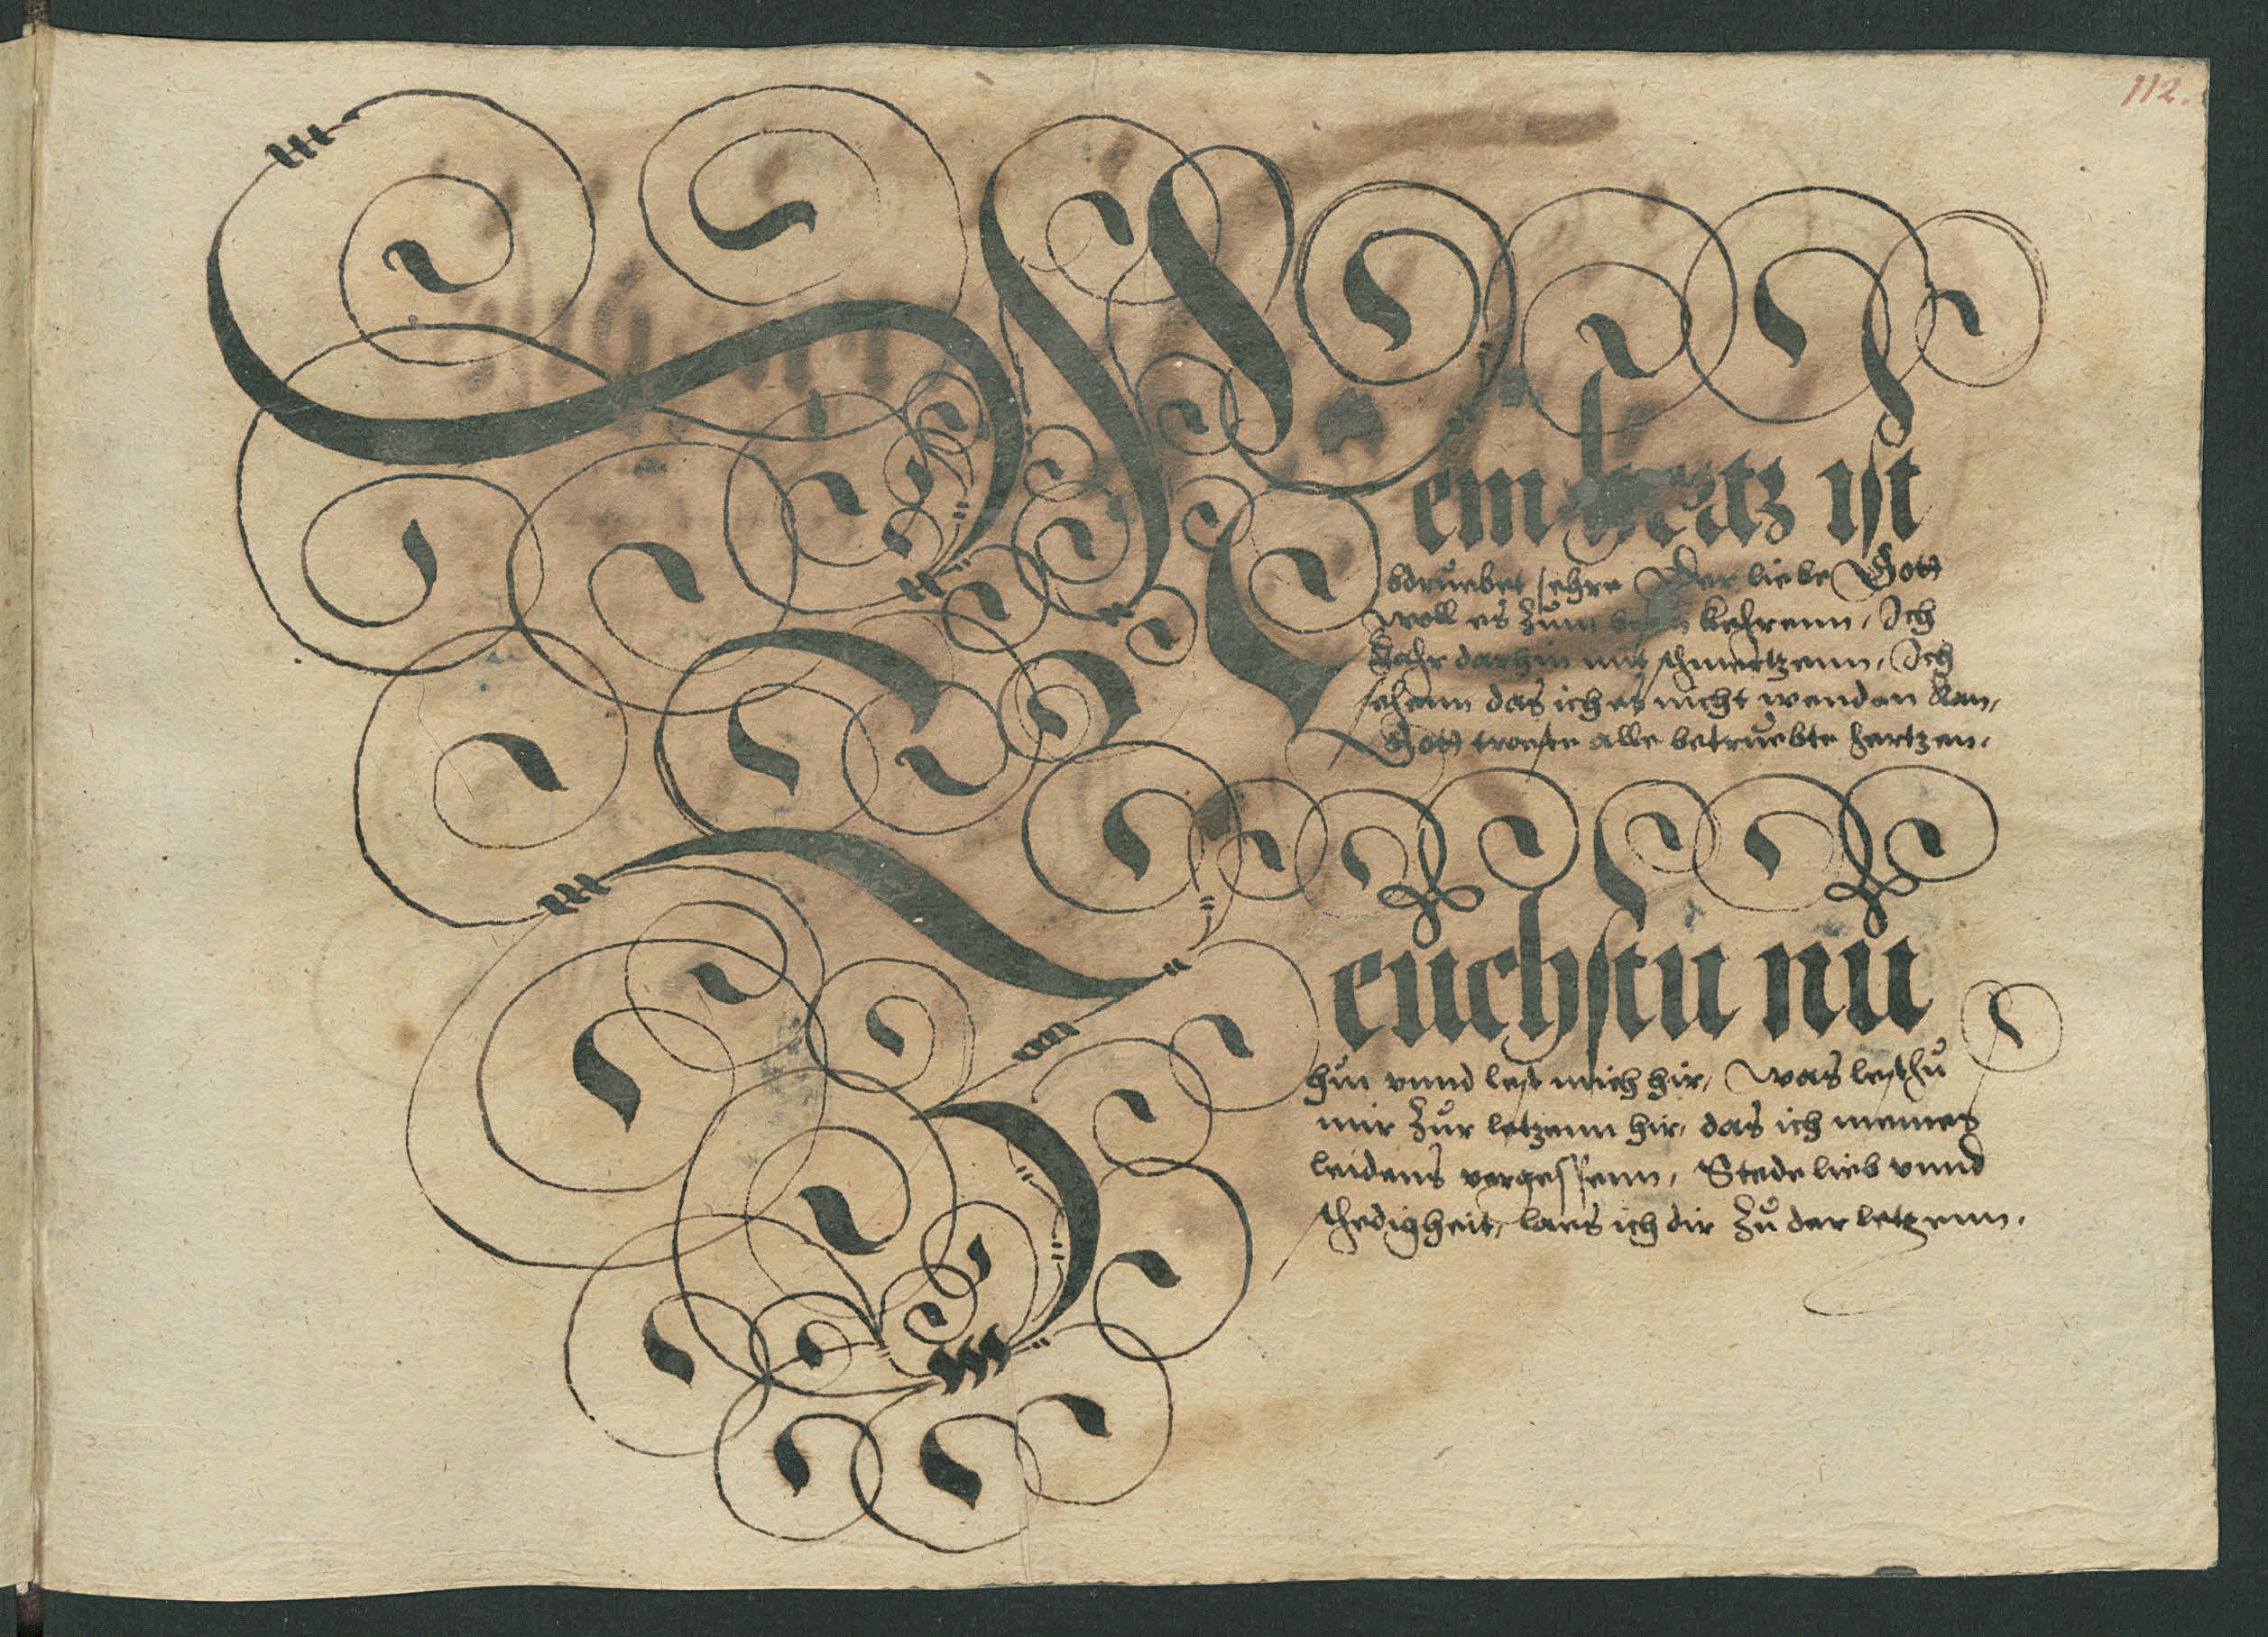 112.
Mein hertz ist
bdruebet sehre Der liebe Gott
woll es zum besten kehrenn, Ich
Fahr darhin mit schmertzenn, Ich
sehenn das ich es nicht wenden kan,
Gott troeste alle betruebte hertzen.
Zeuchstu nu
hin vnnd lest mich hir, Was lesthu
mir zur letzenn hir, das ich meines
leidens vergessenn, Stede lieb vnnd
laes ich dir zu der letzenn.